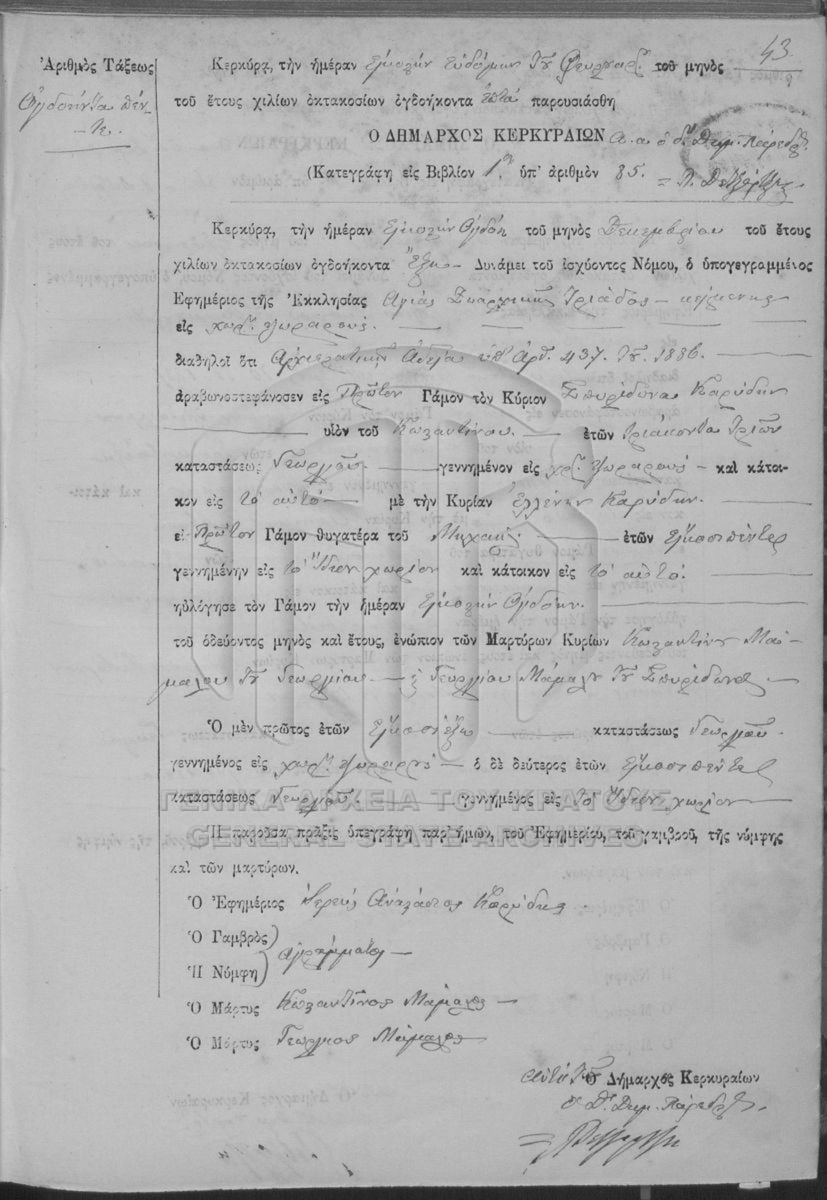 43
Ἀριθμὸς Τάξεως
Ὀγδοήντα πέν-
τε.
Κερκύρα, τὴν ἡμέραν Εἰκοστὴν ἑβδόμην τοῦ Φευρουαρ. τοῦ μηνὸς
τοῦ ἔτους χιλίων ὀκτακοσίων ὀγδοήκοντα ἑπτά παρουσιάσθη
Ὁ ΔΗΜΑΡΧΟΣ ΚΕΡΚΥΡΑΙΩΝ Α. α. ὁ Δημ. Πάρεδρ.
(Κατεγράφη εἰς Βιβλίον 1ον ὑπ' ἀριθμὸν 85.
Κερκύρα, τὴν ἡμέραν Εἰκοστὴν Ὀγδόη τοῦ μηνὸς Δεκεμβρίου τοῦ ἔτους
χιλίων ὀκτακοσίων ὀγδοήκοντα Ἕξη — Δυνάμει τοῦ ἰσχύοντος Νόμου, ὁ ὑπογεγραμμένος
Ἐφημέριος τῆς Ἐκκλησίας Αγιάς Τριάδος — κειμενης
εἰς χωρ.
διαδηλοῖ ὅτι Αρχιερατικη Αδεια ὑπ Αρθ. 437. τοῦ 1886. —
ἀραβωνοστεφάνοσεν εἰς Πρῶτον Γάμον τὸν Κύριον Σπυρίδωνα Καρύδην
υἱὸν τοῦ Κωσταντίνου — ἐτῶν τριάκοντα τριῶν
καταστάσεως Γεωργοῦ — γεννημένον εἰς χωρ. — καὶ κάτοι-
κον εἰς τὸ αὐτό — μὲ τὴν Κυρίαν Ἑλλένην Καρύδην. —
εἰ Πρῶτον Γάμον θυγατέρα τοῦ Μιχαὴλ — ἐτῶν Εἴκοσι πέντε
γεννημένην εἰς τὸ Ἴδιον χωρίον καὶ κάτοικον εἰς τὸ αὐτό.
ηὐλόγησε τὸν Γάμον τὴν ἡμέραν Εἰκοστὴν Ὀγδόην.
τοῦ ὁδεύοντος μηνὸς καὶ ἔτους, ἐνώπιον τῶν Μαρτύρων Κυρίων Κωσταντίνου Μαμ-
μαλου τοῦ Γεωργίου — & Γεωργίου Μάμαλου τοῦ Σπυρίδωνος —
Ὁ μὲν πρῶτος ἐτῶν Εἴκοσι ἕξη — καταστάσεως Γεωργοῦ
γεννημένος εἰς χωρ. — ὁ δὲ δεύτερος ἐτῶν Εἴκοσι πέντε
καταστάσεως Γεωργοῦ. — γεννημένος εἰς τὸ Ἴδιον χωρίον —
ΓΕΝΙΚΑ ΑΡΧΕΙΑ ΤΟΥ ΚΡΑΤΟΥΣ
GENERAL STATE ARCHIVES
Ἡ παροῦσα πρᾶξις ὑπεγράφη παρ' ἡμῶν, τοῦ Ἐφημερίου, τοῦ γαμβροῦ, τῆς νύμφης
καὶ τῶν μαρτύρων.
Ὁ Ἐφημέριος Ἱερεύς Ανασάσιος Καρύδης.
Ὁ Γαμβρὸς
Ἡ Νύμφη
Αγράμματοι —
Ὁ Μάρτυς Κωσταντῖνος Μάμαλος —
Ὁ Μάρτυς Γεώργιος Μάμαλος
Ὁ Δήμαρχος Κερκυραίων
Δημ. Πάρεδρος.